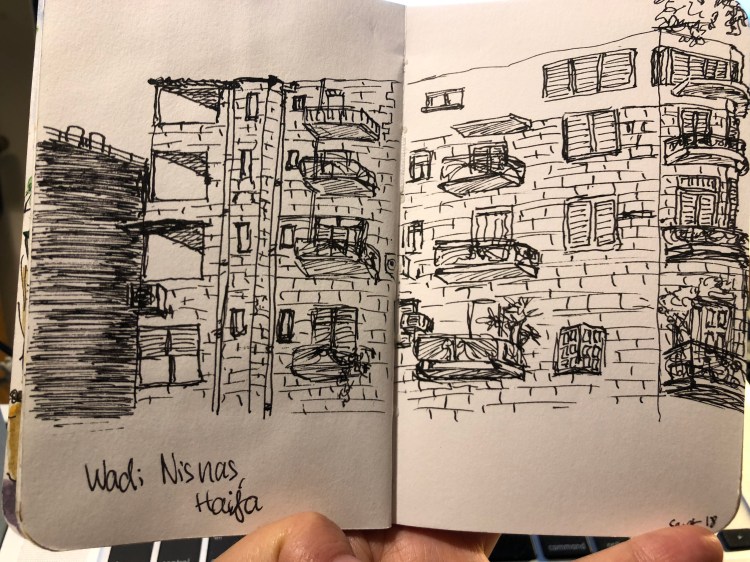 Wadi Nisnas,
Haifa
18
command